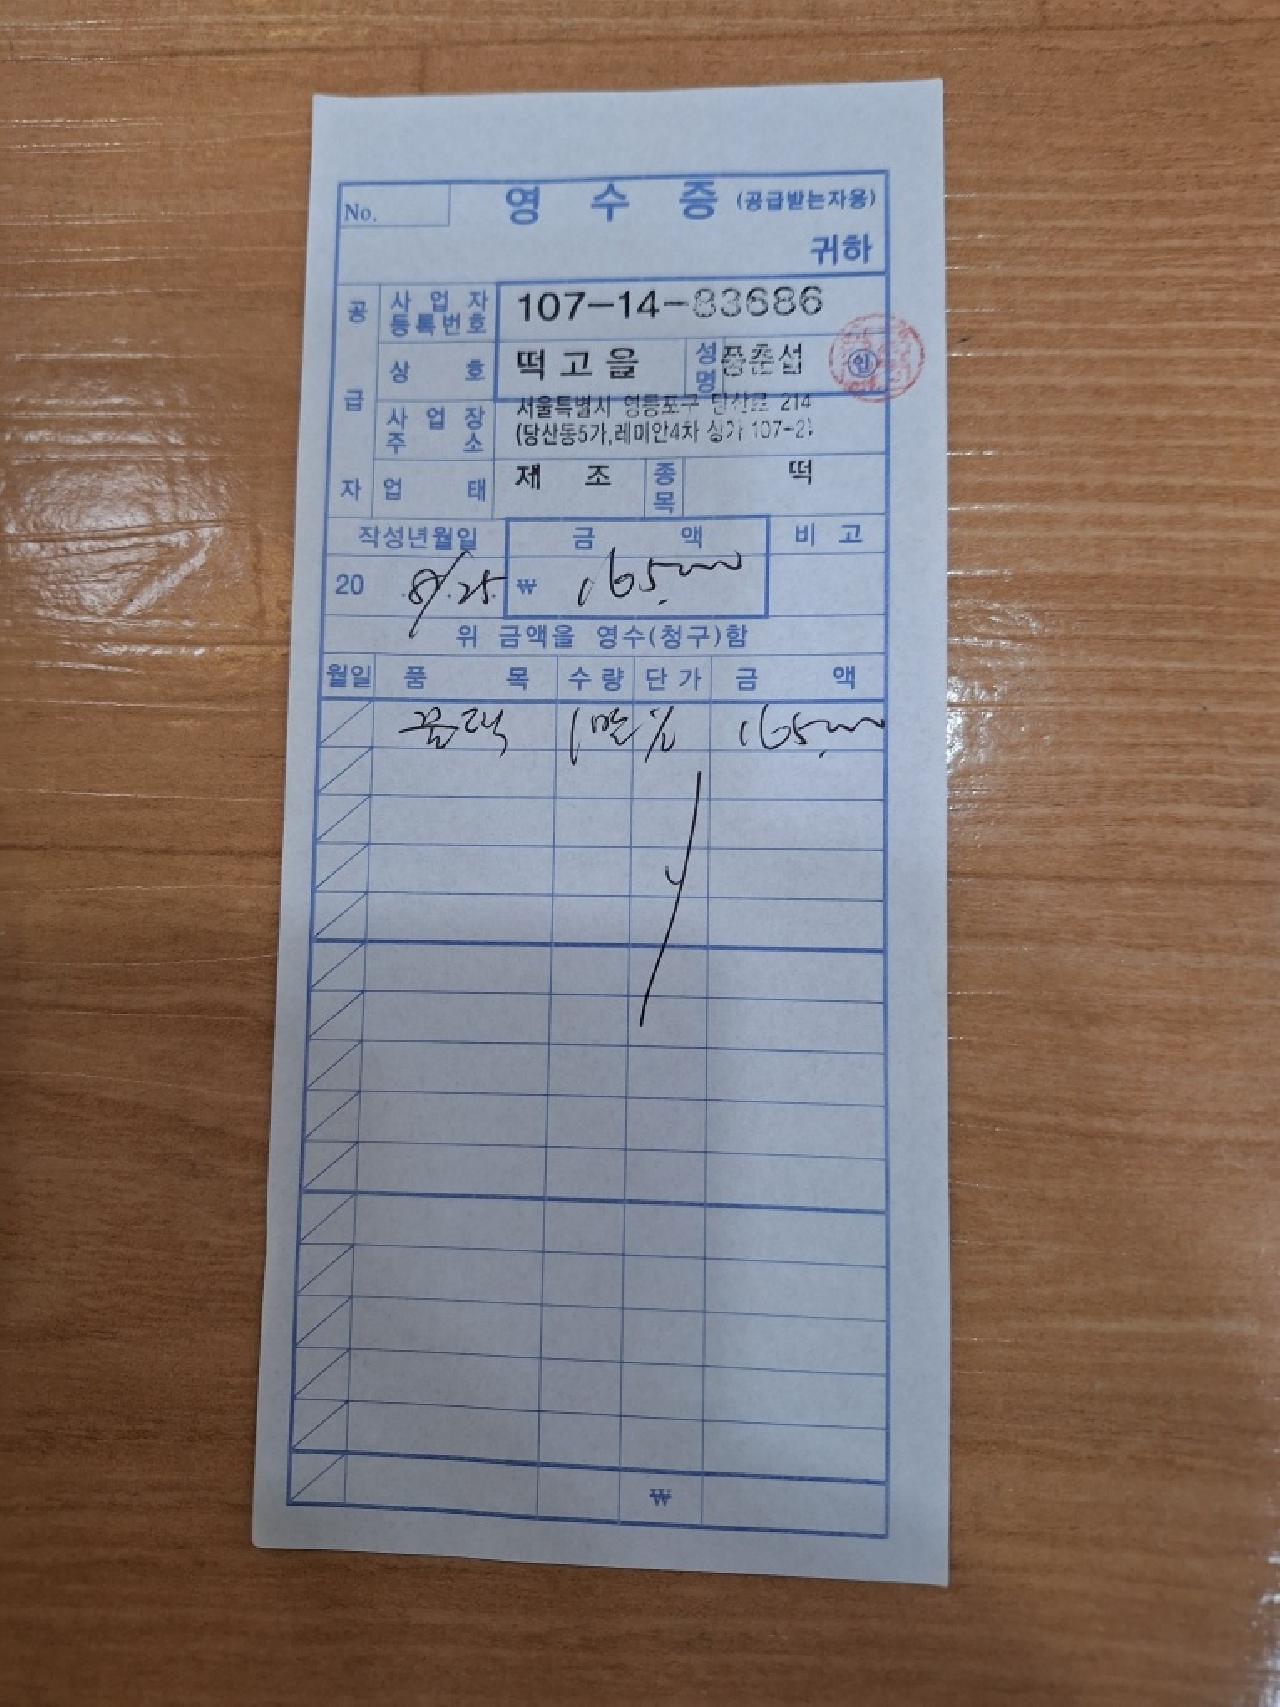 No. 영 수 증 (공급받는자용)
귀하
공급자 사업자등록번호 107-14-83686
상호 떡고을 성명 춘섭
사업장주소 서울특별시 영등포구 당산로 214
(당산동5가,래미안4차 상가 107-2)
업태 제조 종목 떡
작성년월일 금액 비고
20 8/25. ₩ 165,000
위 금액을 영수(청구)함
월일 품목 수량 단가 금액
꿀떡 1말 165,000
₩
인